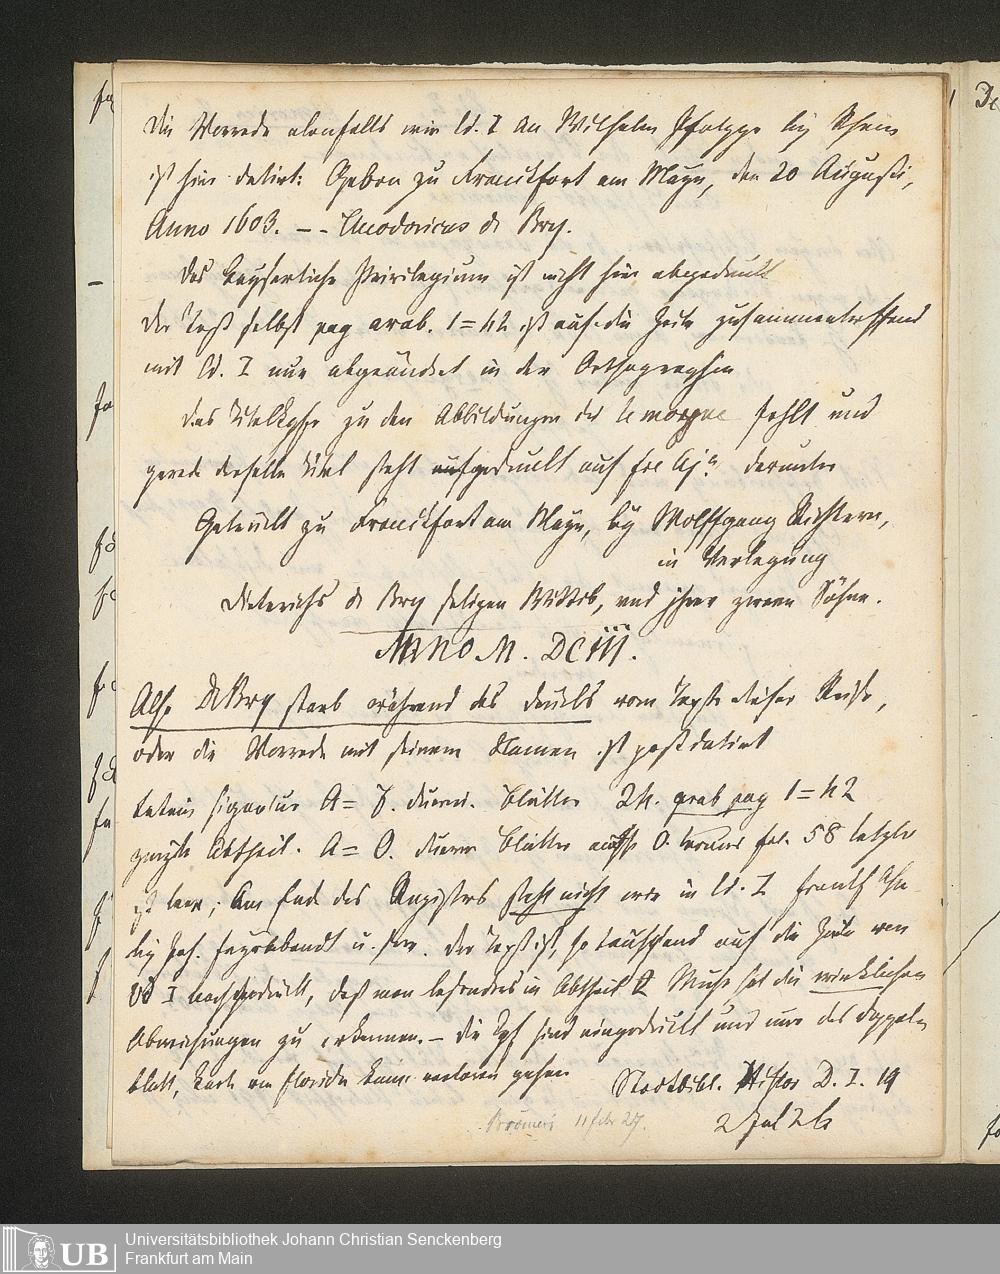 Die Vorrede ebenfalls wie Ed. I an Wilhelm Pfalzgr. bey Rhein
ist hier datirt: Geben zu Franckfort am Mayn, den 20 Augusti,
Anno 1603. – – Theodoricus de Bry.
Das Kayserliche Privilegium ist nicht hier abgedruckt
Der Text selbst pag arab. 1=42 ist auf die Zeile zusammentreffend
mit Ed. I nur abgeändert in der Orthographie
Das Titelkpfr zu den Abbildungen des le morgue fehlt und
gerade derselbe Titel steht aufgedruckt auf darunter
Getruckt zu Franckfort am Mayn, by Wolffgang Richtern,
in Verlegung
Dieterichs de Bry seligen Wittib, vnd jhrer zween Söhne.
ANNO M. DCIII.
Also De Bry starb während des Drucks vom Texte dieser Reise,
oder die Vorrede mit seinem Namen ist postdatirt
Latein signatur A= F. duern. Blätter 24. arab pag 1=42
zweyte Abtheil. A= O. duern Blätter O. ternus fol. 58 letzte
ist leer; Am Ende des Registers steht nicht wie in Ed. I
Joh. Feyrabendt u. s. w. Der Text ist, so täuschend auf die Zeile von
Ed I nachgedruckt, daß man besonders in Abtheil Mühe hat die wirklichen
Abweichungen zu erkennen. – Die Kpf sind eingedruckt und nur das doppel
blatt, Karte von Florida kann verloren gehen
Stadtbibl. Histor D. I. 19
2 Jul 26
11 febr 27.
Universitätsbibliothek Johann Christian Senckenberg
UB
Frankfurt am Main